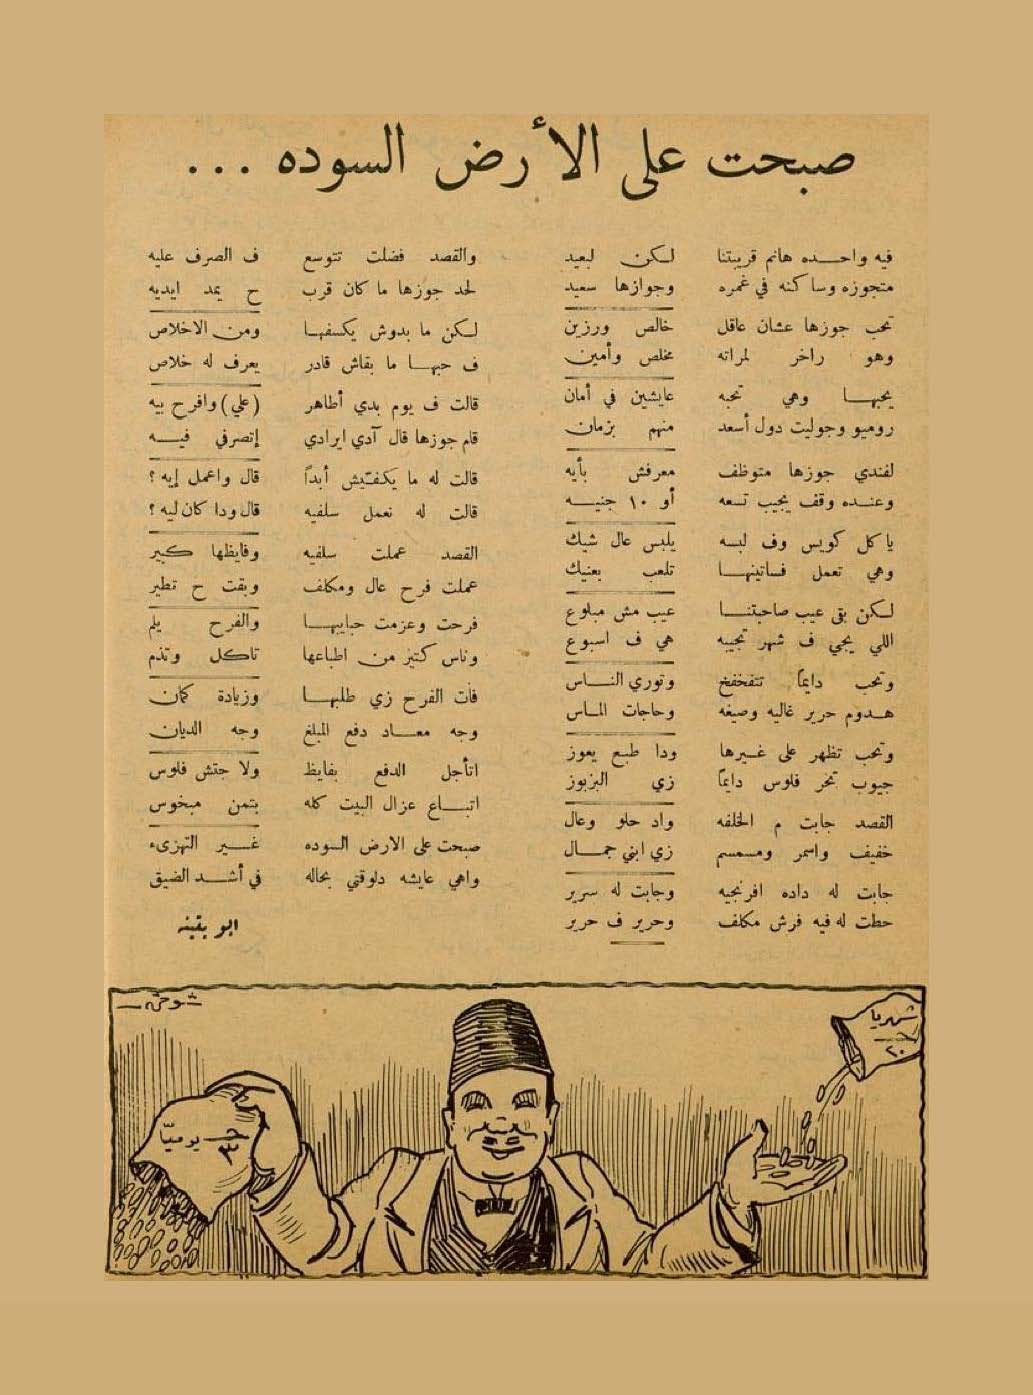 صبحت على الأرض السوده ...
فيه واحده هانم قريبتنا لكن لبعيد
متجوزه وساكنه في غمره وجوازها سعيد
تحب جوزها عشان عاقل خالص ورزين
وهو راخر لمراته مخلص وأمين
يحبها وهي تحبه عايشين في أمان
روميو وجوليت دول أسعد منهم بزمان
لفندي جوزها متوظف معرفش بأيه
وعنده وقف يجيب تسعه أو ١٠ جنيه
ياكل كويس وف لبسه يلبس عال شيك
وهي تعمل فساتينها تلعب بعنيك
لكن بقى عيب صاحبتنا عيب مش مبلوع
اللي يجي ف شهر تجيبه هي ف اسبوع
وتحب دايماً تتفخفخ وتوري الناس
هدوم حرير غاليه وصيغه وحاجات الماس
وتحب تظهر على غيرها ودا طبع يعوز
جيوب تخر فلوس دايماً زي البزبوز
القصد جابت م الخلفه واد حلو وعال
خفيف واسمر ومسمسم زي ابني جمال
جابت له داده افرنجيه وجابت له سرير
حطت له فيه فرش مكلف وحرير ف حرير
والقصد فضلت تتوسع ف الصرف عليه
لحد جوزها ما كان قرب ح يمد ايديه
لكن ما بدوش يكسفها ومن الاخلاص
ف حبها ما بقاش قادر يعرف له خلاص
قالت ف يوم بدي أطاهر (علي) وافرح بيه
قام جوزها قال آدي ايرادي إتصرفي فيه
قالت له ما يكفتيش أبداً قال واعمل إيه ؟
قالت له نعمل سلفيه قال ودا كان ليه ؟
القصد عملت سلفيه وفايظها كبير
عملت فرح عال ومكلف وبقت ح تطير
فرحت وعزمت حبايبها والفرح يلم
وناس كتيز من اطباعها تاكل وتذم
فات الفرح زي طلبها وزيادة كمان
وجه معاد دفع المبلغ وجه الديان
اتأجل الدفع بفايظ ولا جتش فلوس
اتباع عزال البيت كله بتمن مبخوس
صبحت على الارض السوده غير التهزىء
واهي عايشه دلوقتي بحاله في أشد الضيق
ابو بثينه
شوقي
شهريا
٢٠
جـ
٣ يومياً